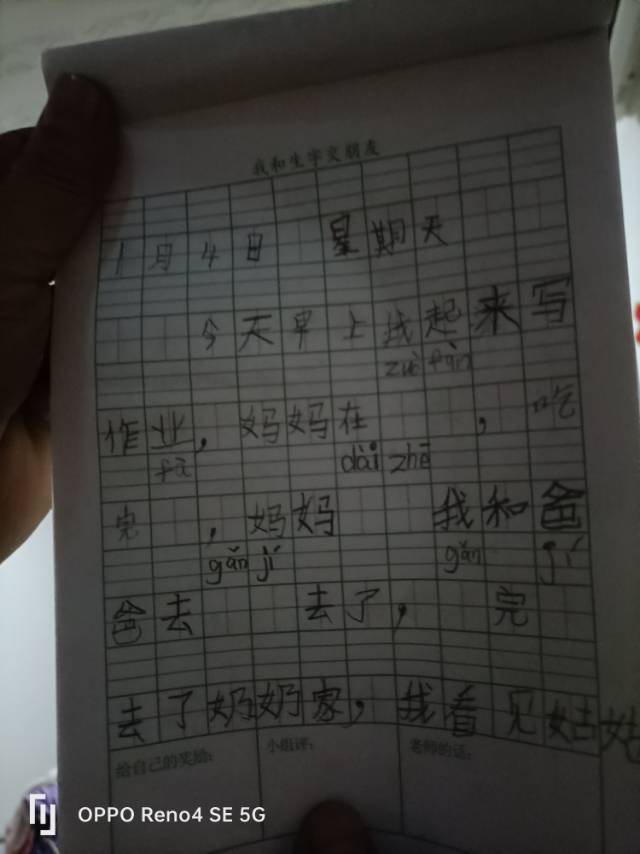 我和生字交朋友
1月4日 星期天
今天早上我起来写
zuò fàn
作业，妈妈在 ，吃
fà
dài zhē
完 ，妈妈 我和爸
gǎn jí
gǎn jí
爸去 去了， 完
去了奶奶家，我看见姑姑
给自己的奖励：
小组评：
老师的话：
OPPO Reno4 SE 5G